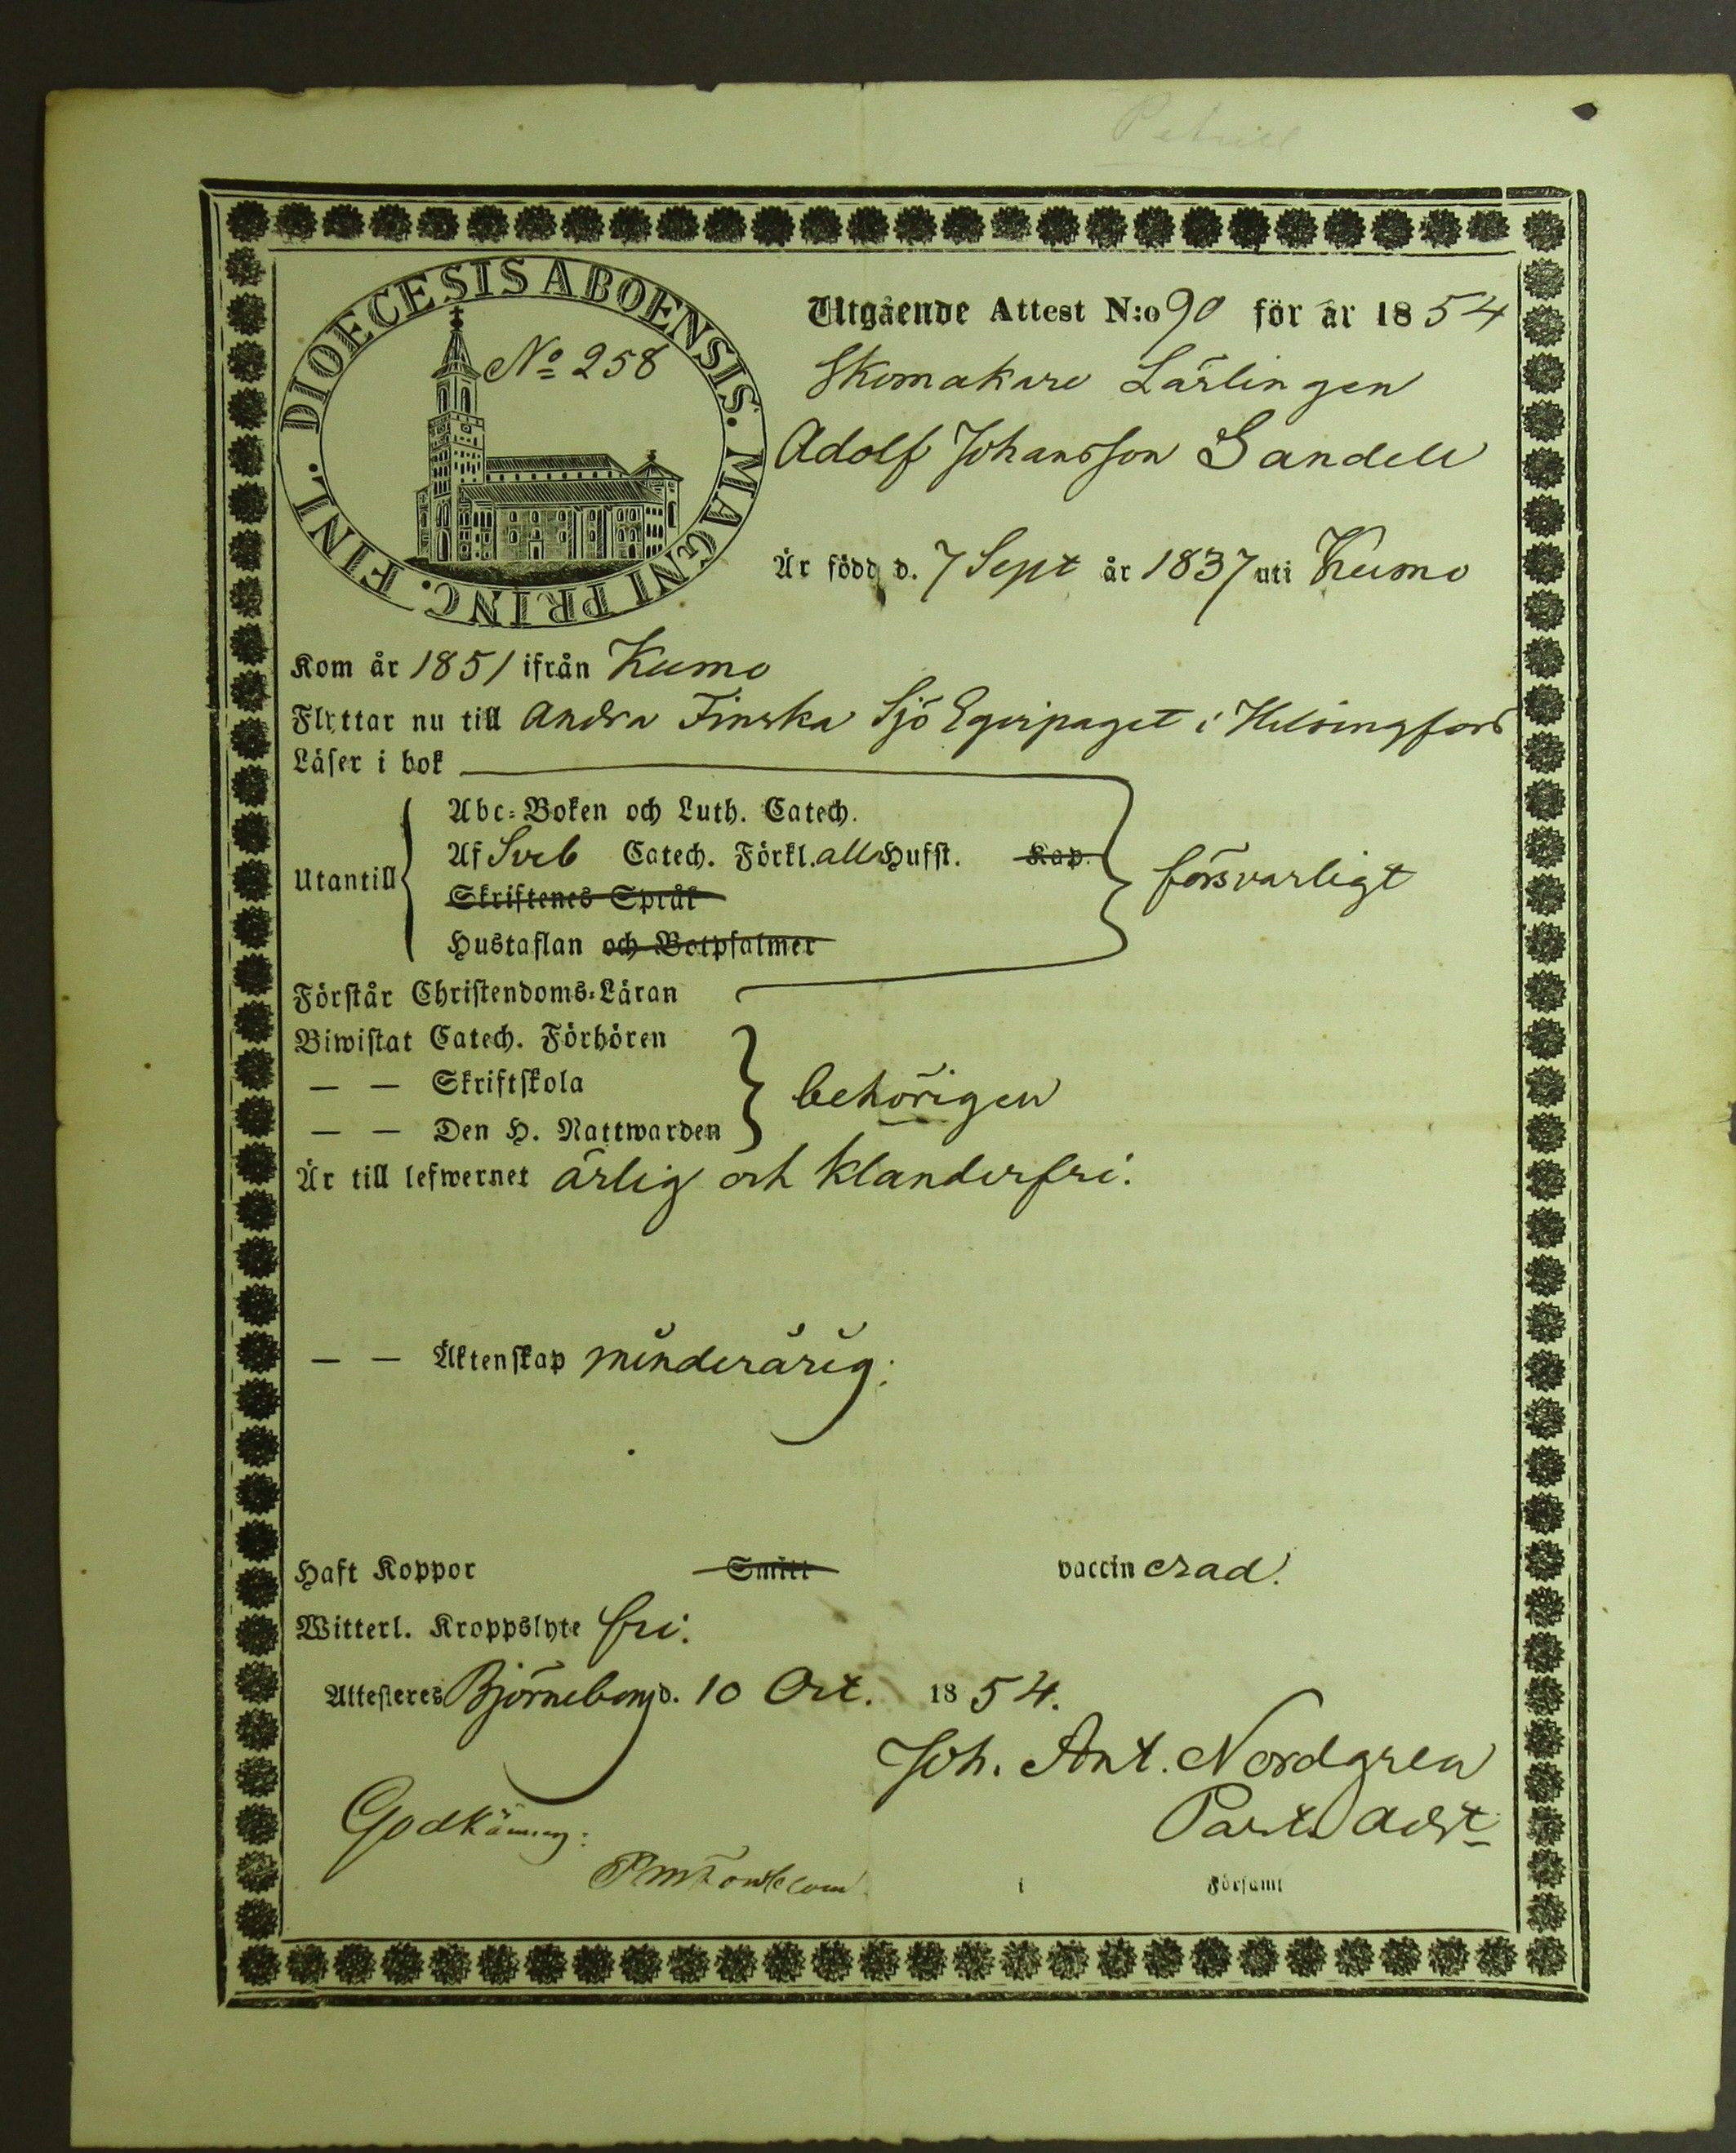 Petrell
DIOECESIS ABOENSIS. MAGNI PRINC. FINL.
No 258
Utgående Attest N:o 90 för år 1854
Skomakare Lärlingen
Adolf Johansson Sandell
Är född d. 7 Sept år 1837 uti Kumo
Kom år 1851 ifrån Kumo
Flyttar nu till Andra Finska Sjö Eqvipaget i Helsingfors
Läser i bok
Abc-Boken och Luth. Catech.
Utantill Af Sveb Catech. Förkl. alla Hufst. Kap. försvarligt
Skriftenes Språk
Hustaflan och Botpsalmer
Förstår Christendoms-Läran
Biwistat Catech. Förhören
— — Skriftskola behörigen
— — Den H. Nattwarden
Är till lefwernet ärlig och klanderfri.
— — Äktenskap minderårig.
Haft Koppor Smitt vaccinerad.
Witterl. Kroppslyte fri.
Attesteres Björneborg d. 10 Oct. 1854.
Joh. Ant. Nordgren
Past. Adst
Godkännes:
i Församl